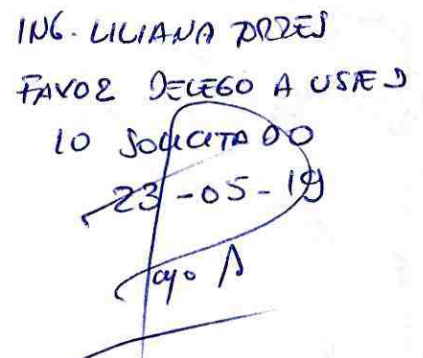 ING. LILIANA
FAVOR DELEGO A USTED
LO SOLICITADO
23-05-19